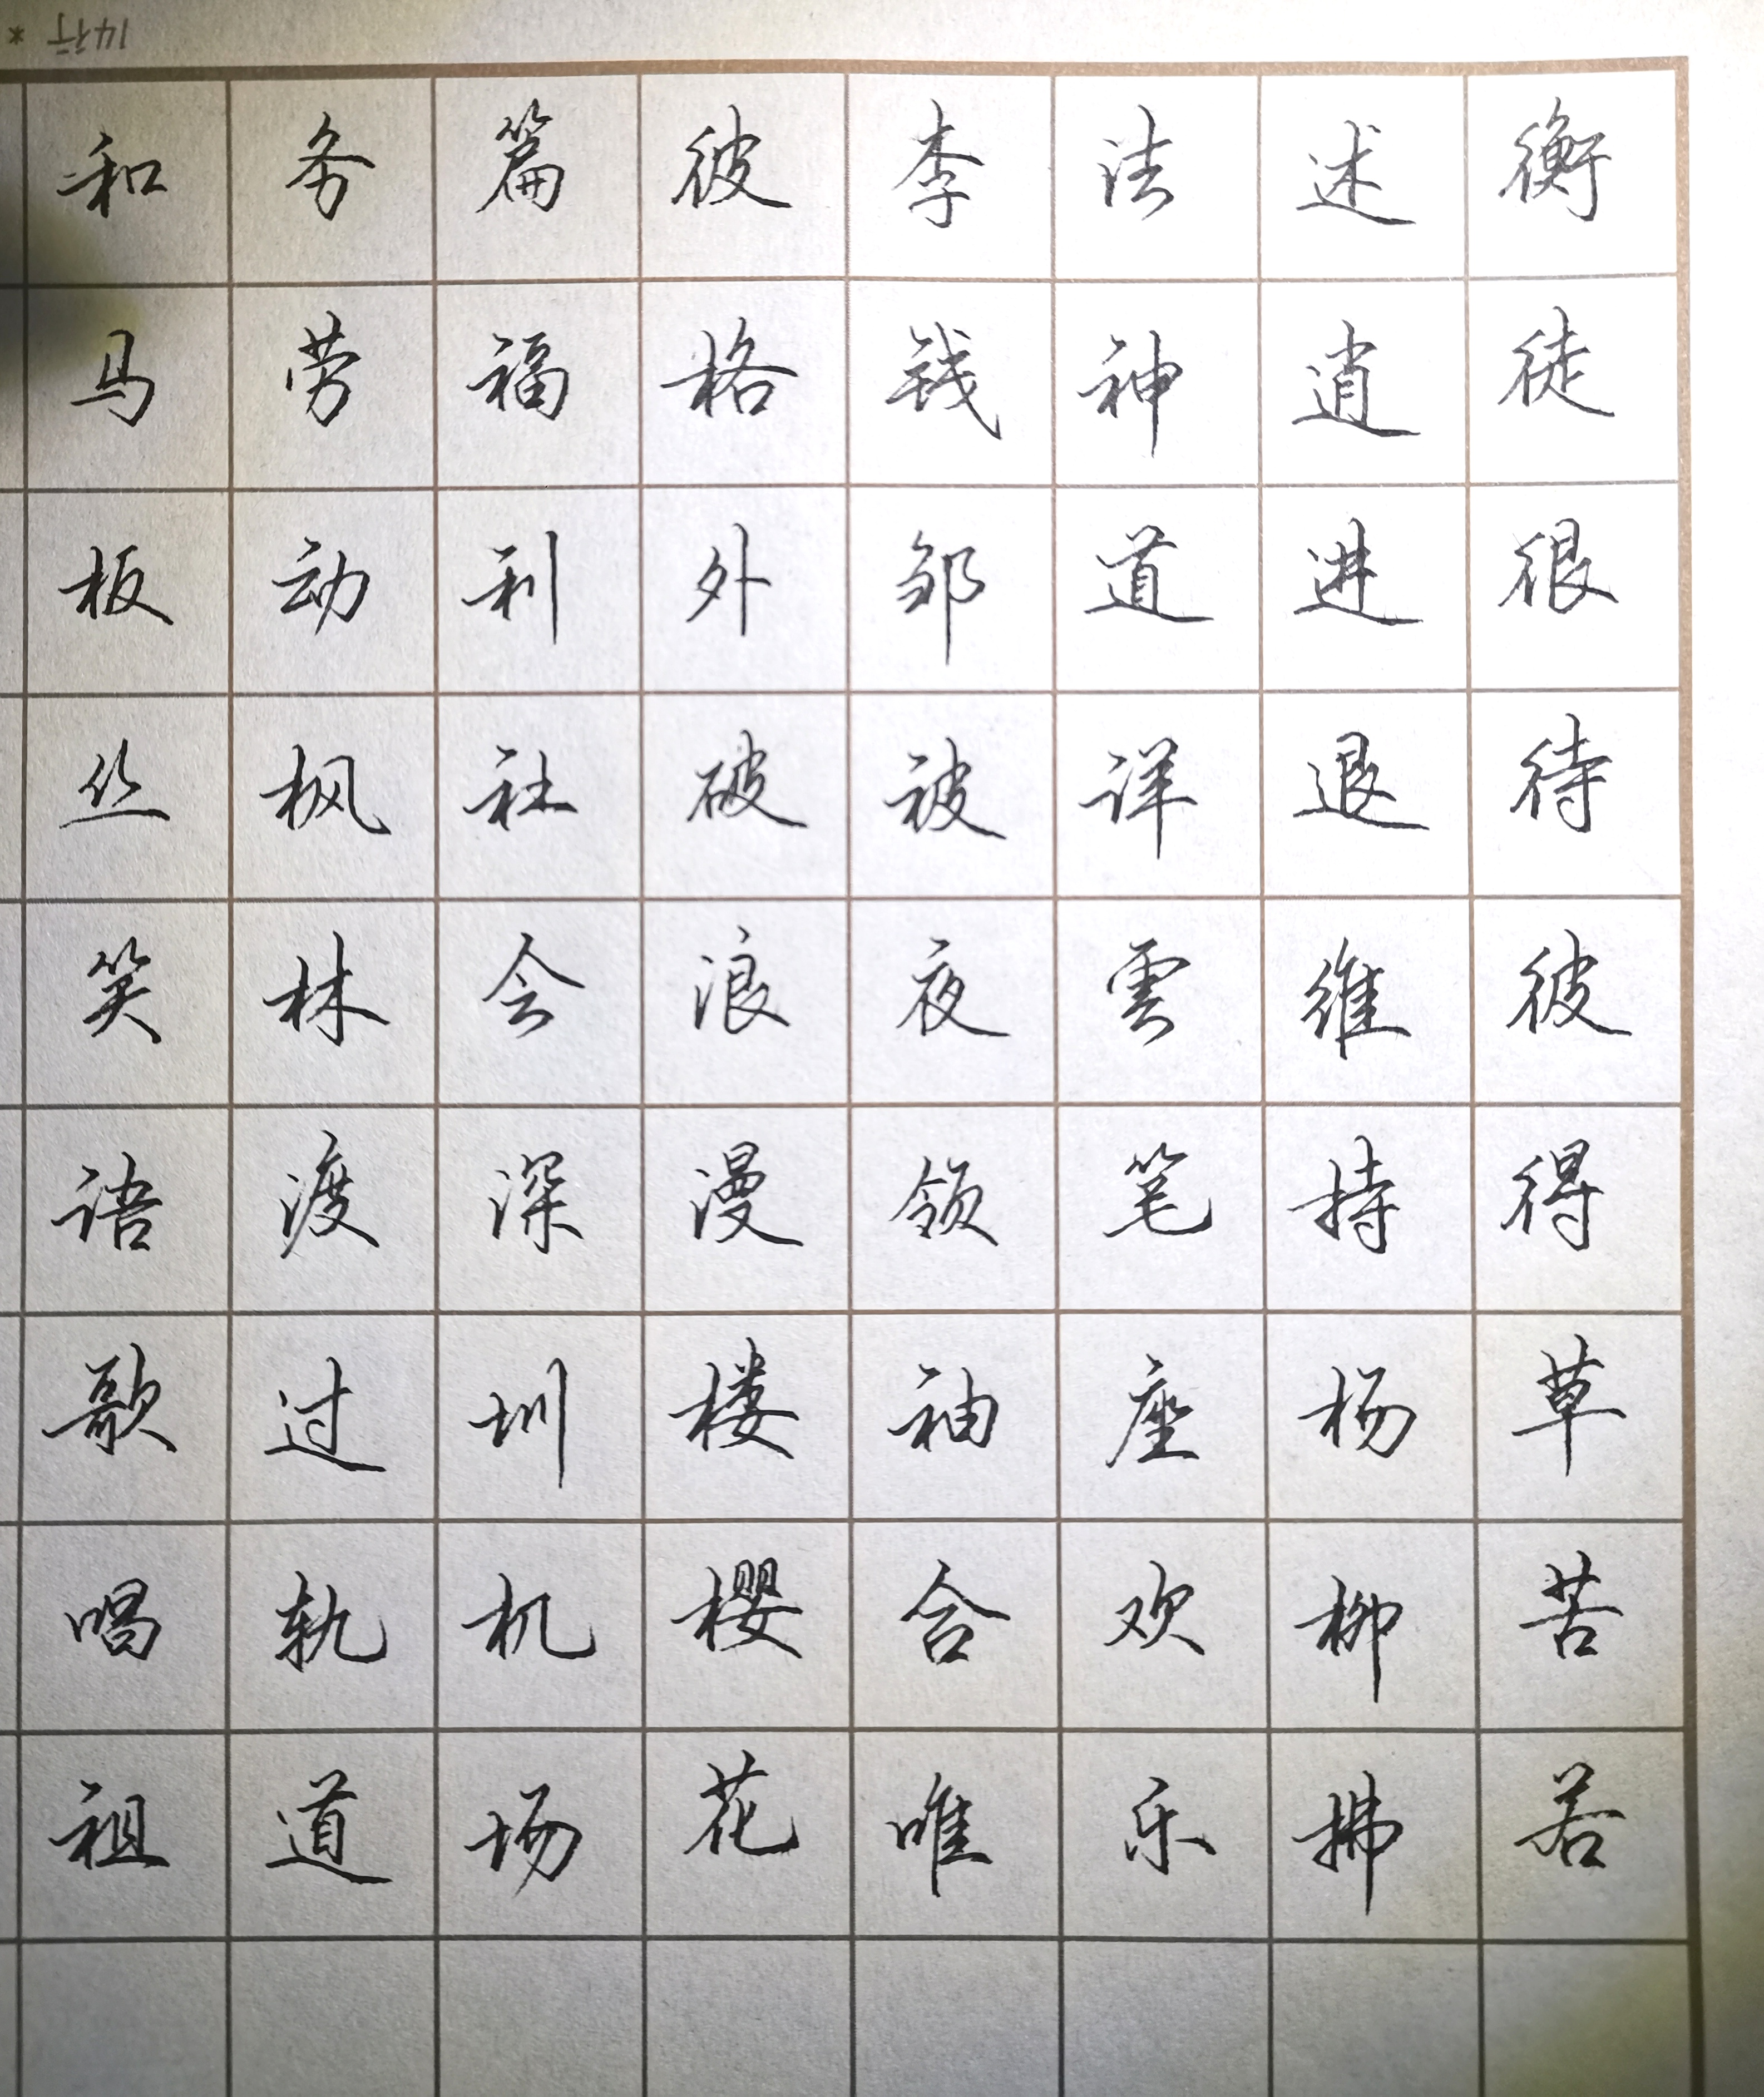 14行 *
衡徒很待彼得草苦若
述逍进退维持杨柳拂
法神道详雲笔座欢乐
李钱邹被夜领袖合唯
彼格外破浪漫楼樱花
篇福利社会深圳机场
务劳动枫林渡过轨道
和马板丝笑语歌唱祖